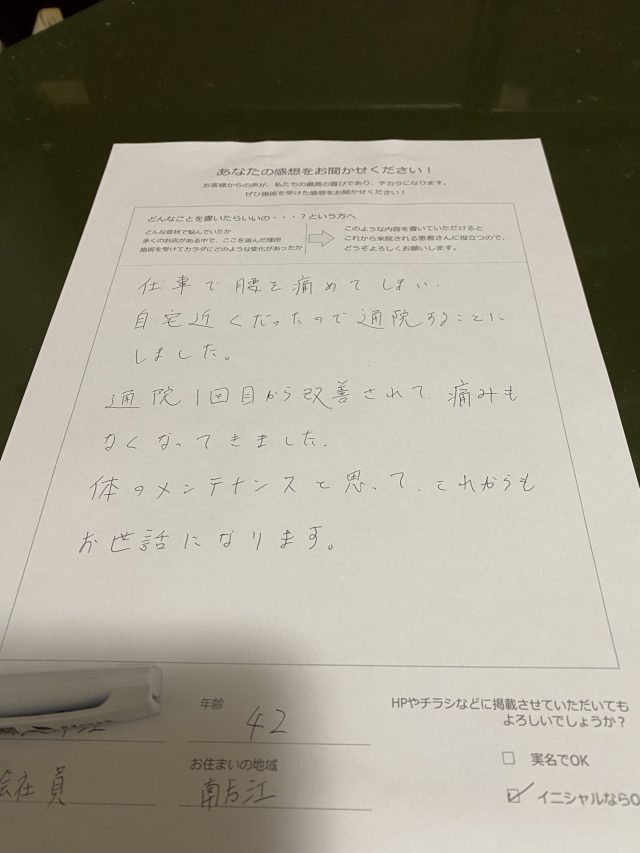 あなたの感想をお聞かせください！
お客様からの声が、私たちの最高の喜びであり、チカラになります。
ぜひ施術を受けた感想をお聞かせください！
どんなことを書いたらいいの・・・？という方へ
どんな症状で悩んでいたか
多くのお店がある中で、ここを選んだ理由
施術を受けてカラダにどのような変化があったか
このような内容を書いていただけると
これから来院される患者さんに役立つので、
どうぞよろしくお願いします。
仕事で腰を痛めてしまい、
自宅近くだったので通院することに
しました。
通院1回目から改善されて、痛みも
なくなってきました。
体のメンテナンスと思って、これからも
お世話になります。
年齢
42
HPやチラシなどに掲載させていただいても
よろしいでしょうか？
実名でOK
イニシャルならO
会社員
お住まいの地域
南方江